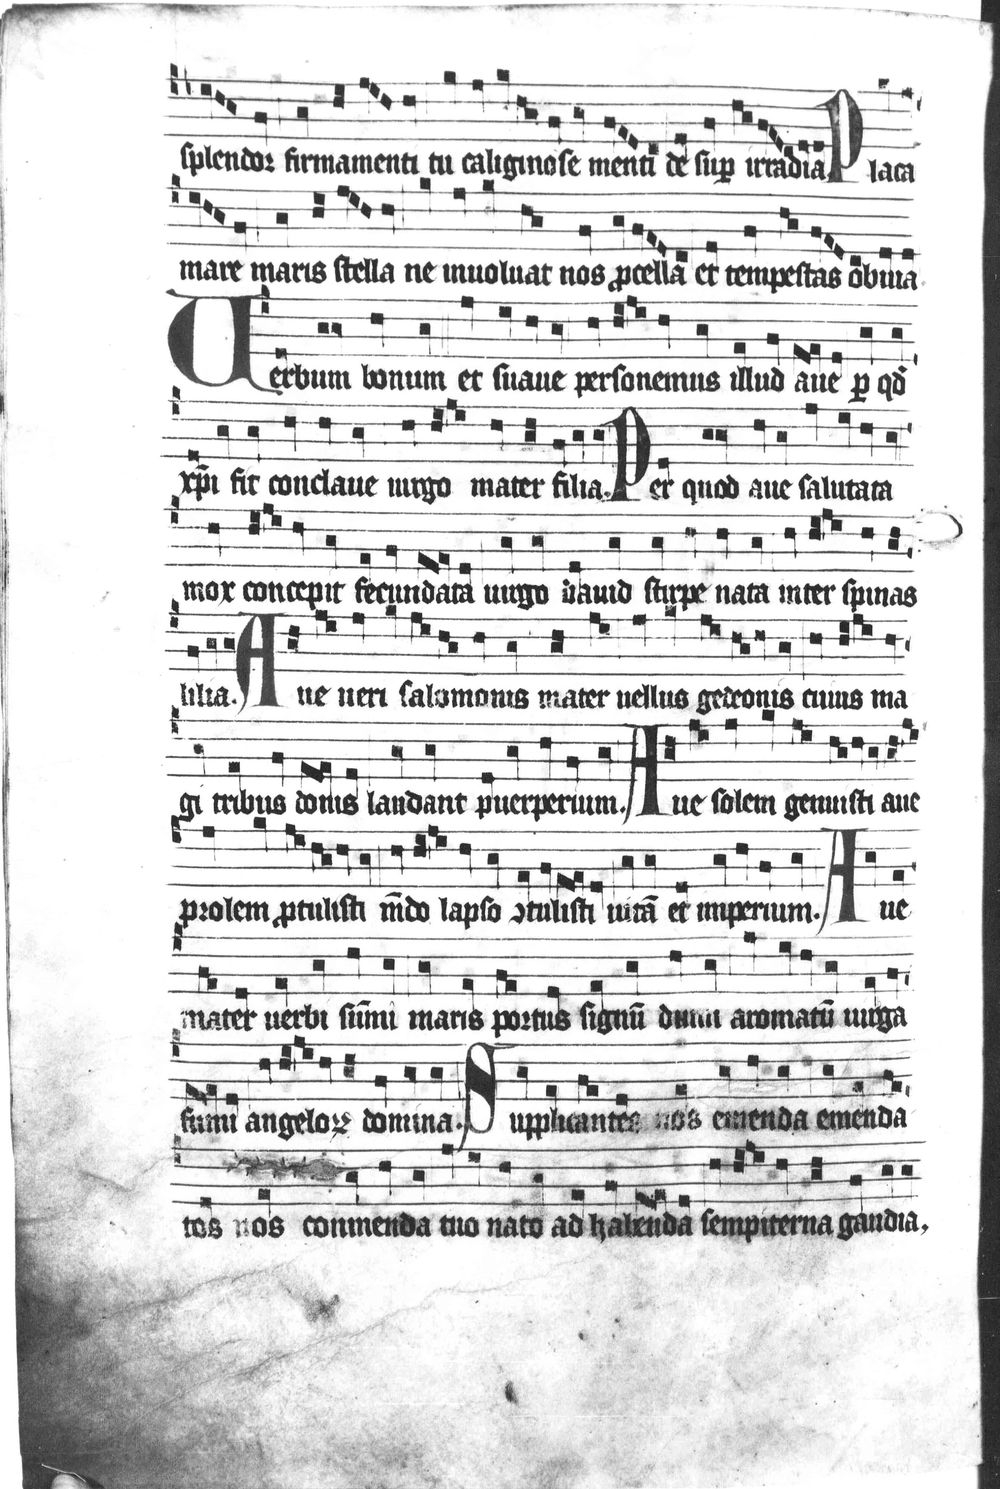 splendor firmamenti tu caliginose menti de sup̱ irradia. Placa
mare maris stella ne inuoluat nos ꝓcella et tempestas obuia.
Uerbum bonum et suaue personemus illud aue ꝑ qd̄
xp̄i fit conclaue uirgo mater filia. Per quod aue salutata
mox concepit fecundata uirgo dauid stirpe nata inter spinas
lilia. Aue ueri salomonis mater uellus gedeonis cuius ma
gi tribus donis laudant puerperium. Aue solem genuisti aue
prolem ꝓtulisti mūdo lapso ↄtulisti uitā et imperium. Aue
mater uerbi sūmi maris portus signū dumi aromatū uirga
fumi angeloꝝ domina. Supplicantes nos emenda emenda
tos nos conmenda tuo nato ad habenda sempiterna gaudia.